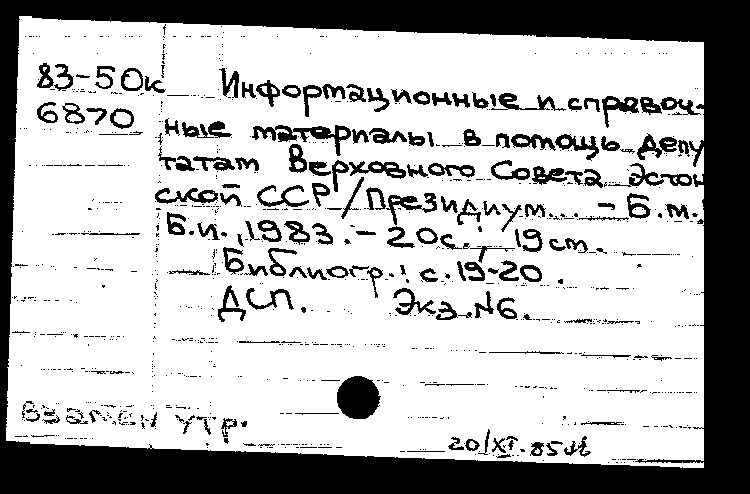 83-50к
6870
Информационные и справоч-
ные материалы в помощь депу
татам Верховного Совета Эстон
ской ССР / Президиум... - Б.м.:
Б.и., 1983. - 20 с.; 19 см.
Библиогр.: с. 19-20.
ДСП. Экз. №6.
Взамен утр.
20/XI.85